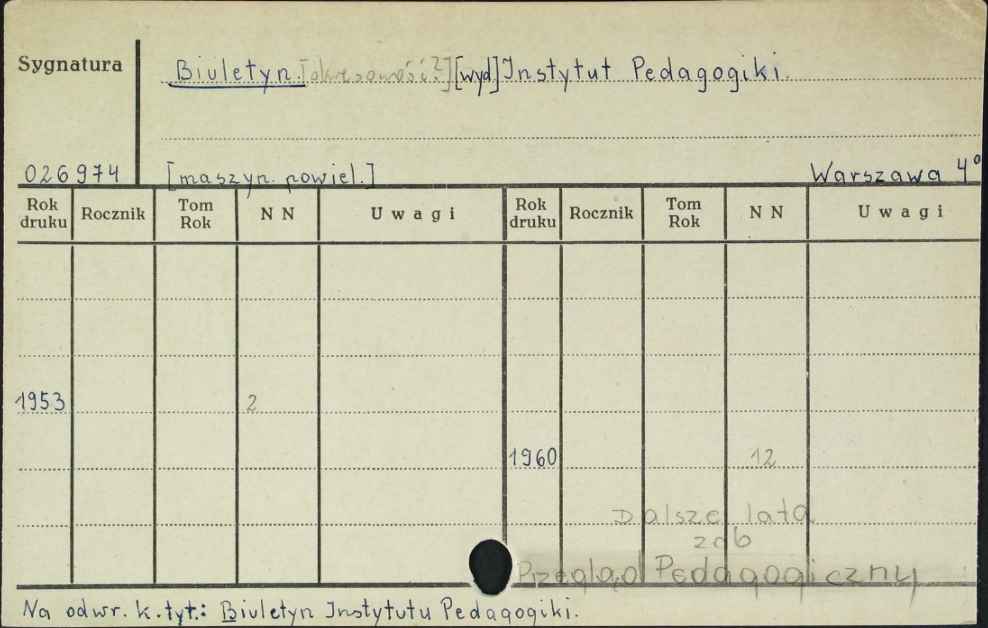 Sygnatura
Biuletyn. [okresowość?] [wyd] Instytut Pedagogiki.
026974 [maszyn. powiel.] Warszawa 4°
Rok druku Rocznik Tom Rok N N Uwagi Rok druku Rocznik Tom Rok N N Uwagi
1953 2
1960 12
Dalsze lata
zob
Przegląd Pedagogiczny
Na odwr. k. tyt.: Biuletyn Instytutu Pedagogiki.